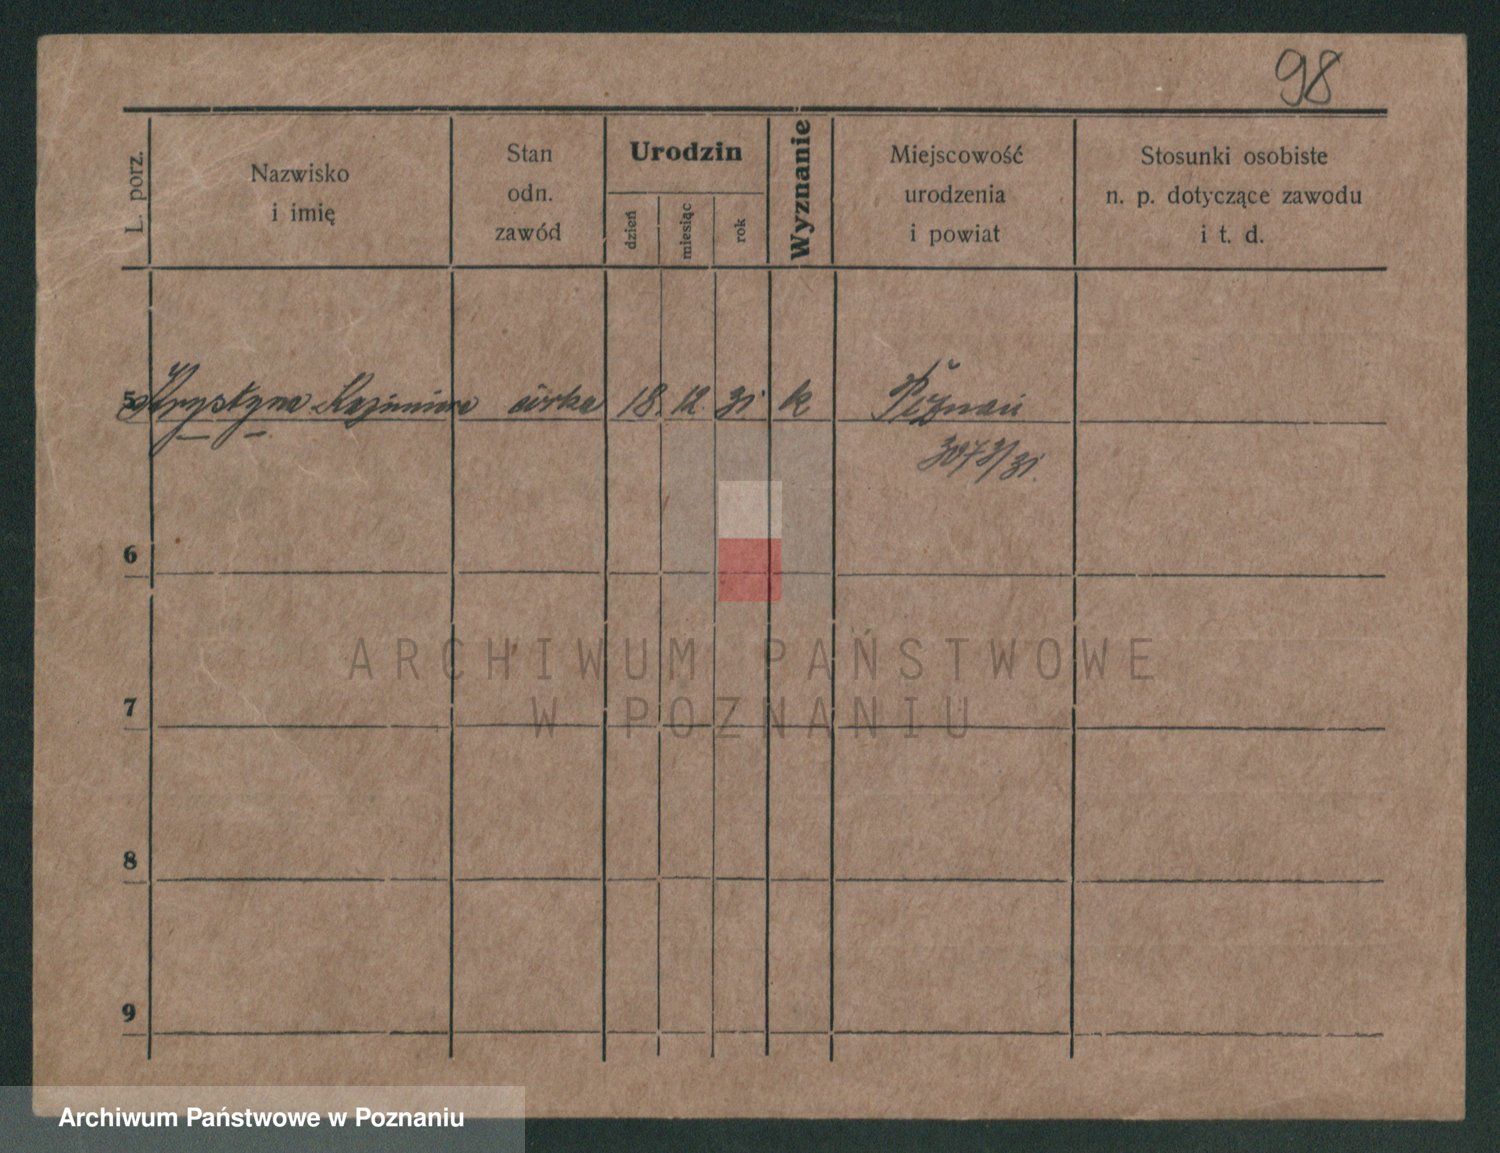 98
L. porz.
Nazwisko
i imię
Stan
odn.
zawód
Urodzin
dzień
miesiąc
rok
Wyznanie
Miejscowość
urodzenia
i powiat
Stosunki osobiste
n. p. dotyczące zawodu
i t. d.
5 Krystyna Kazimiera córka 18. 12. 31 k Poznań
/31.
6
7
8
9
ARCHIWUM PAŃSTWOWE
W POZNANIU
Archiwum Państwowe w Poznaniu